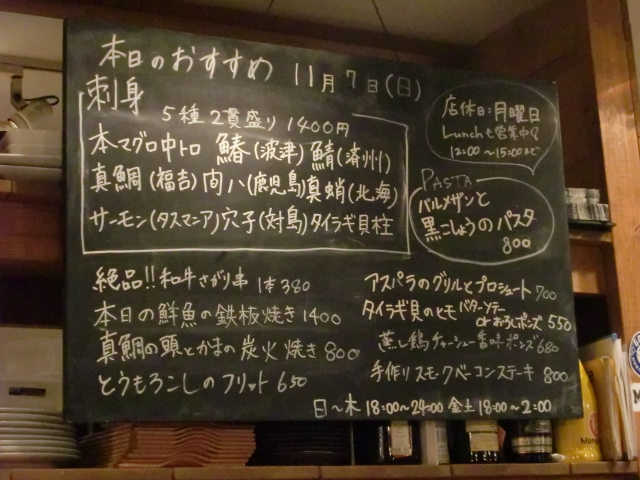 本日のおすすめ 11月7日(日)
刺身
5種2貫盛り 1400円
本マグロ中トロ 鰆(波津) 鯖(済州)
真鯛(福吉) 向八(鹿児島) 真蛸(北海)
サーモン(タスマニア) 穴子(対島) タイラギ貝柱
店休日:月曜日
Lunchも営業中
12:00〜15:00まで
PASTA
パルメザンと
黒こしょうのパスタ
800
絶品!!和牛さがり串 1本380
本日の鮮魚の鉄板焼き 1400
真鯛の頭とかまの炭火焼き 800
とうもろこしのフリット 650
アスパラのグリルとプロシュート 700
タイラギ貝のヒモ バターソテー
orおろしポンズ 550
蒸し鶏チャーシュー 香味ポンズ 680
手作りスモークベーコンステーキ 800
日〜木 18:00〜24:00 金土 18:00〜2:00